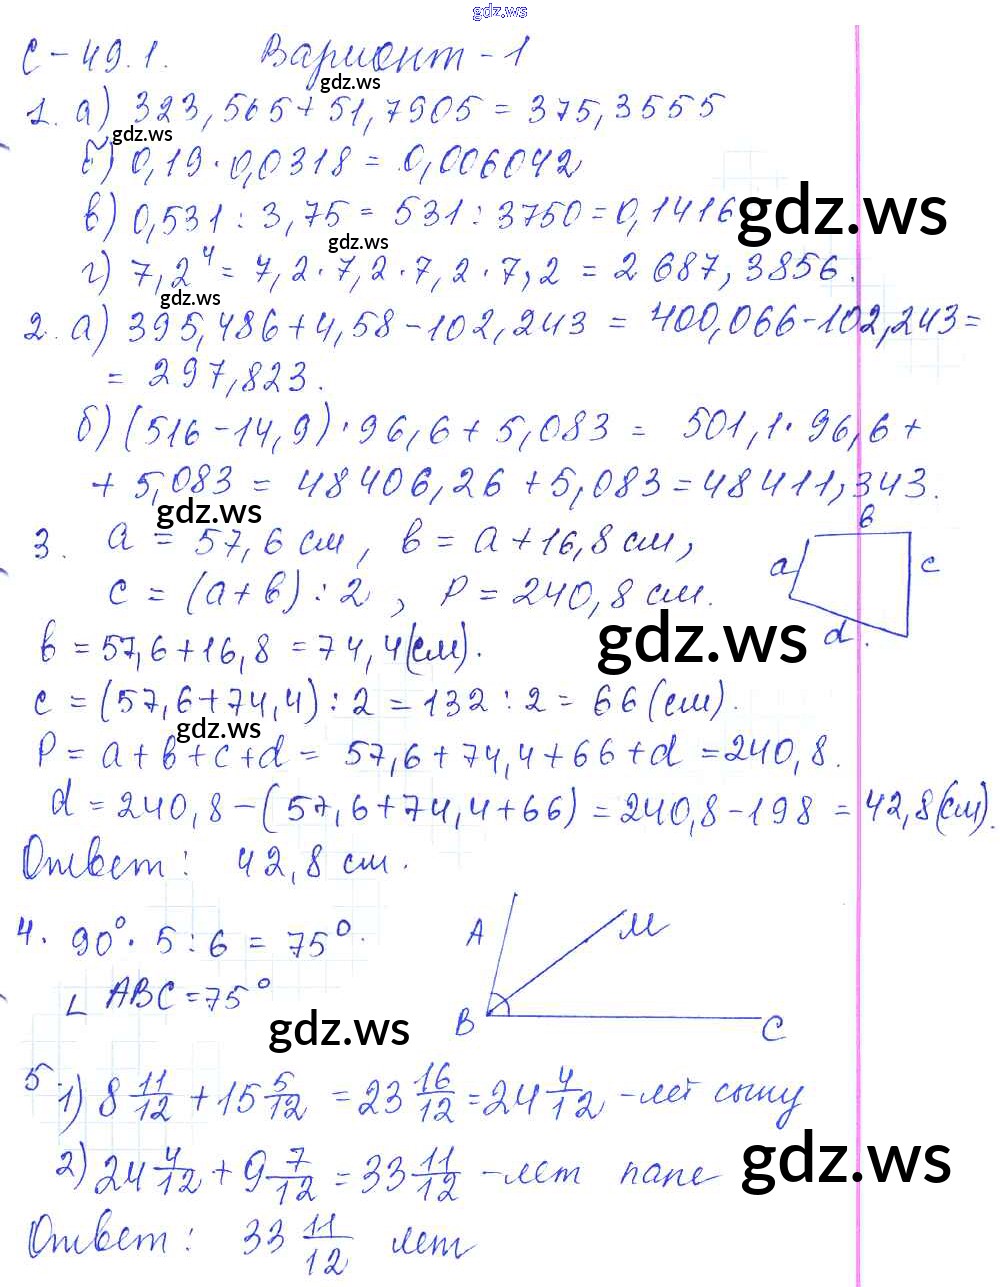 gdz.ws
С-49.1. Вариант-1
gdz.ws
1. а) 323,565+51,7905=375,3555
gdz.ws
б) 0,19·0,0318=0,006042
в) 0,531:3,75=531:3750=0,1416
gdz.ws
gdz.ws
г) 7,2⁴=7,2·7,2·7,2·7,2=2687,3856.
gdz.ws
2. а) 395,486+4,58-102,243=400,066-102,243=
=297,823.
б) (516-14,9)·96,6+5,083=501,1·96,6+
+5,083=48406,26+5,083=48411,343.
gdz.ws
3. а=57,6 см, в=а+16,8 см,
с=(а+в):2, Р=240,8 см.
в
а
с
d
gdz.ws
в=57,6+16,8=74,4(см).
с=(57,6+74,4):2=132:2=66(см).
gdz.ws
Р=а+в+с+d=57,6+74,4+66+d=240,8.
d=240,8-(57,6+74,4+66)=240,8-198=42,8(см).
Ответ: 42,8 см.
4. 90°·5:6=75°.
∟ABC=75°
A
M
B
C
gdz.ws
5 1) 8 11/12+15 5/12=23 16/12=24 4/12-лет сыну
2) 24 4/12+9 7/12=33 11/12-лет папе
gdz.ws
Ответ: 33 11/12 лет